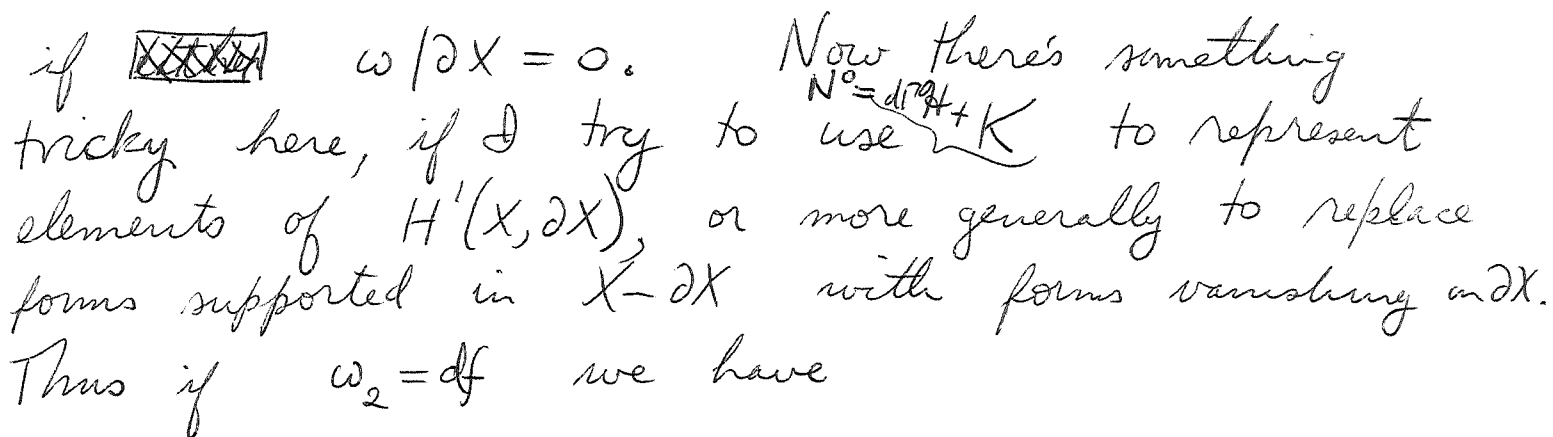 if ω/∂X = 0. Now there's something
N⁰ = dΓ⁰H + K
tricky here, if I try to use K to represent
elements of H¹(X,∂X), or more generally to replace
forms supported in X-∂X with forms vanishing on ∂X.
Thus if ω₂ = df we have